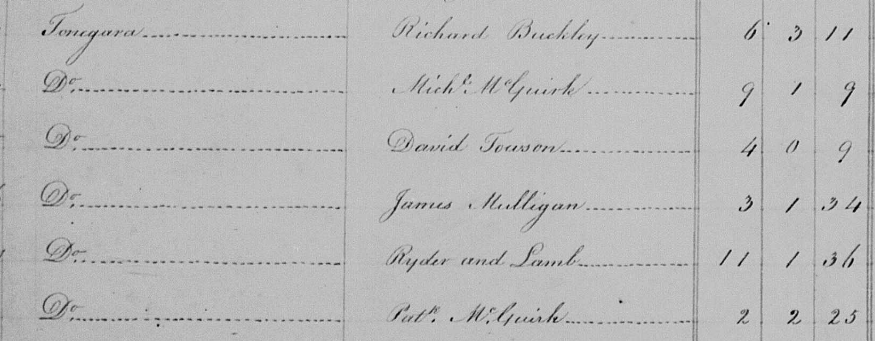 Tonegara Richard Buckley 6 3 11
Do. Michl. McGuirk 9 1 9
Do. David Towson 4 0 9
Do. James Mulligan 3 1 34
Do. Ryder and Lamb 11 1 36
Do. Patk. McGuirk 2 2 25